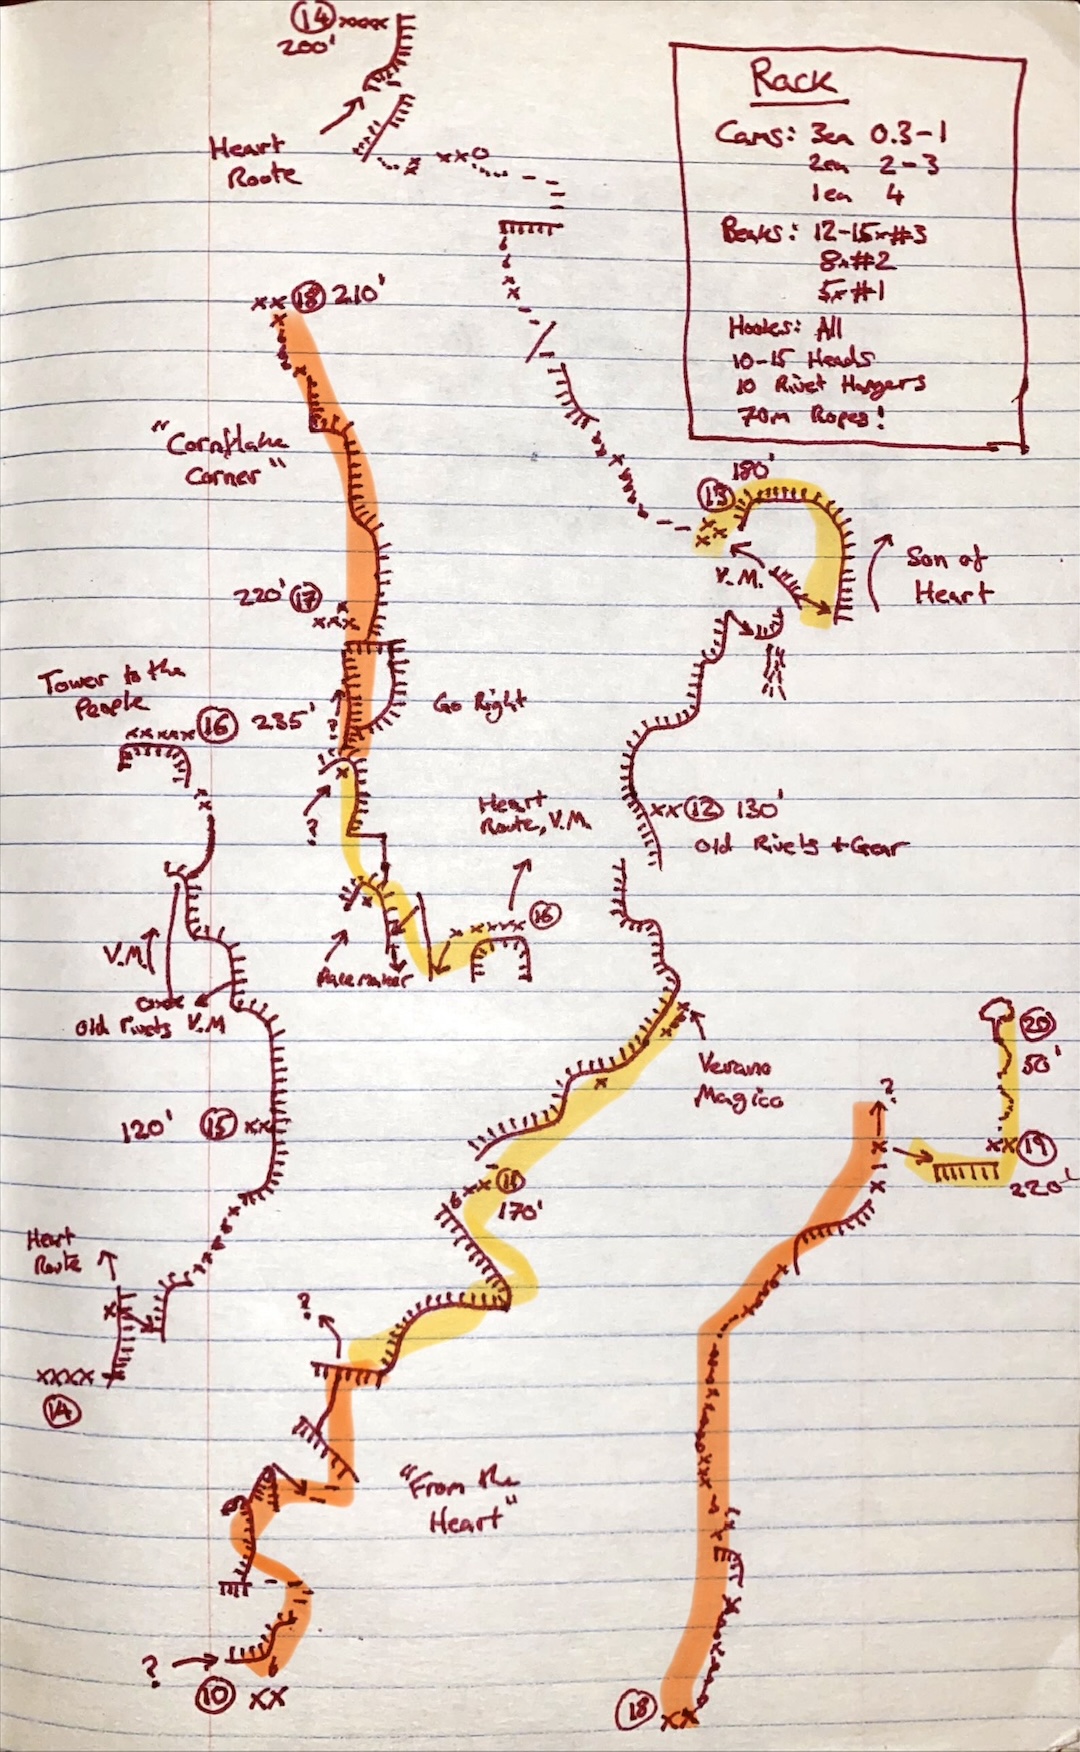 14 xxxx
200'
Heart
Route
xxo
Rack
Cams: 3ea 0.3-1
2ea 2-3
1ea 4
Beaks: 12-15x#3
8x#2
5x#1
Hooks: All
10-15 Heads
10 Rivet Hangers
70m Ropes!
xx 18 210'
"Cornflake
Corner"
180'
13
V.M.
Son of
Heart
220' 17
xxx
Tower to the
People
xxxxx 16 235'
?
Go Right
?
Heart
Route, V.M.
xx 12 130'
Old Rivets + Gear
xxxxx 16
V.M.
Pacemaker
Old rivets V.M
Verano
Magico
20
50'
?
xx 19
220'
120' 15 xx
xx 11
170'
Heart
Route
?
xxxx
14
"From the
Heart"
?
10 xx
18 xx